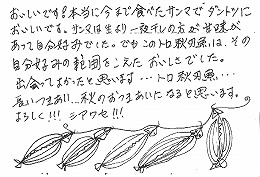 おいしいです!本当に今まで食べたサンマでダントツに
おいしいです。サンマは生より一夜干しの方が甘味が
あって自分好みでした。でもこのトロ秋刀魚は、その
自分好みの範囲をこえたおいしさでした。
出会ってよかったと思います…トロ秋刀魚…
長いつきあい…秋のおつきあいになると思います。
よろしく!!!シアワセ!!!